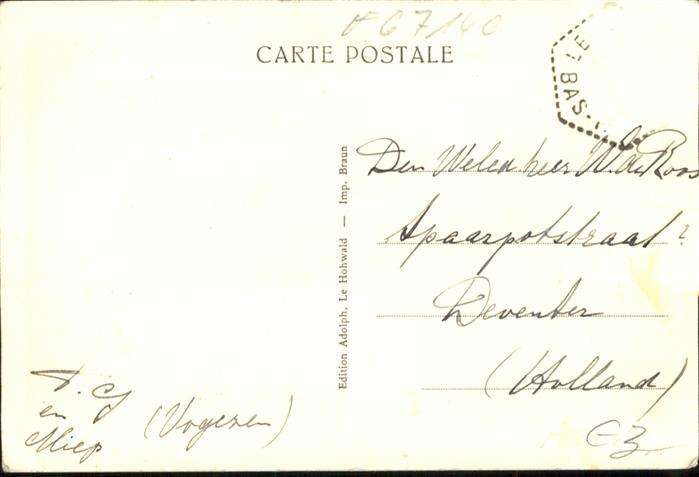 F 67140
CARTE POSTALE
LE
BAS-
Edition Adolph, Le Hohwald — Imp. Braun
Den Weled. heer W. de Roos
Spaarpotstraat 2
Deventer
(Holland)
en
Miep
(Vogezen)